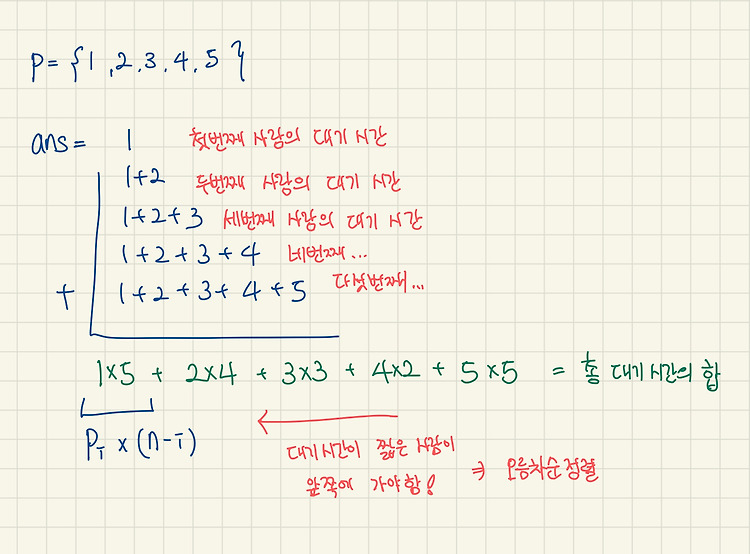 P= {1, 2, 3, 4, 5}
ans = 1 첫번째 사람의 대기 시간
1+2 두번째 사람의 대기 시간
1+2+3 세번째 사람의 대기 시간
1+2+3+4 네번째...
+ 1+2+3+4+5 다섯번째...
1×5 + 2×4 + 3×3 + 4×2 + 5×5 = 총 대기시간의 합
Pi × (n-i)
대기시간이 짧은 사람이
앞쪽에 가야함! ⇒ 오름차순 정렬